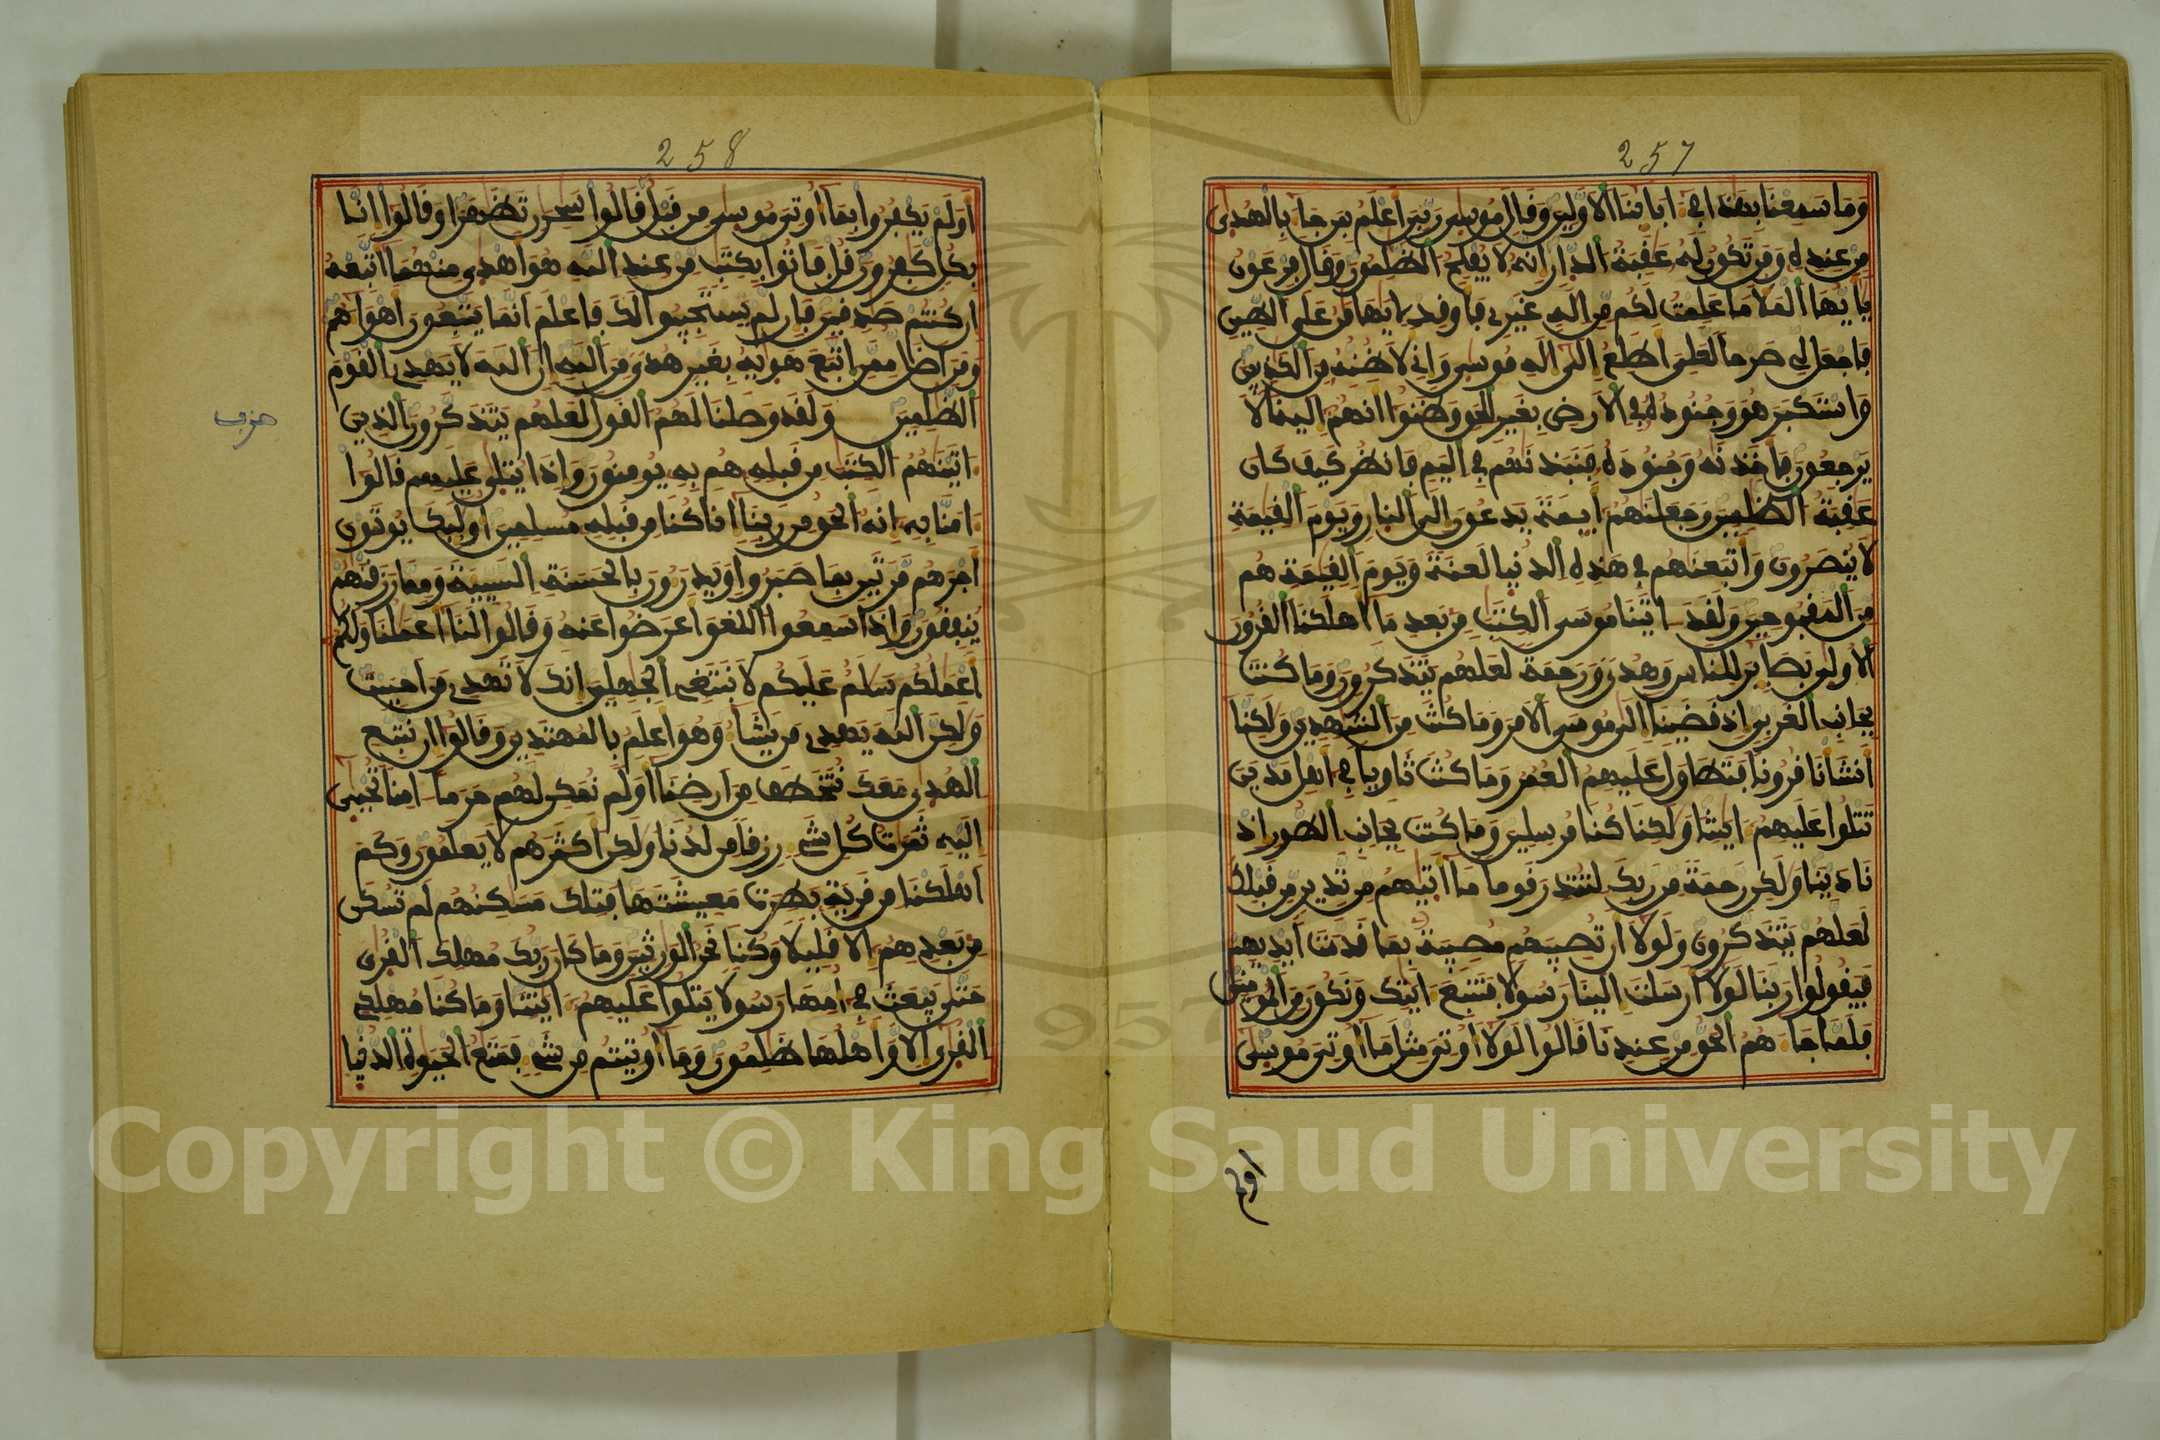 257
وما سمعنا بهذا في ءابائنا الاولين وقال موسى ربي أعلم بمن جاء بالهدى
من عنده ومن تكون له عقبة الدار انه لا يفلح الظلمون وقال فرعون
يايها الملأ ما علمت لكم من اله غيري فاوقد لي يهامن على الطين
فاجعل لي صرحا لعلي اطلع الى اله موسى واني لاظنه من الكذبين
واستكبر هو وجنوده في الارض بغير الحق وظنوا انهم الينا لا
يرجعون فاخذنه وجنوده فنبذنهم في اليم فانظر كيف كان
عقبة الظلمين وجعلنهم أيمة يدعون الى النار ويوم القيمة
لا ينصرون واتبعنهم في هذه الدنيا لعنة ويوم القيمة هم
من المقبوحين ولقد اتينا موسى الكتب من بعد ما أهلكنا القرون
الاولى بصاير للناس وهدى ورحمة لعلهم يتذكرون وما كنت
بجانب الغربي اذ قضينا الى موسى الامر وما كنت من الشهدين ولكنا
أنشأنا قرونا فتطاول عليهم العمر وما كنت ثاويا في أهل مدين
تتلوا عليهم ءايتنا ولكنا كنا مرسلين وما كنت بجانب الطور اذ
نادينا ولكن رحمة من ربك لتنذر قوما ما اتيهم من نذير من قبلك
لعلهم يتذكرون ولولا أن تصيبهم مصيبة بما قدمت أيديهم
فيقولوا ربنا لولا أرسلت الينا رسولا فنتبع ءايتك ونكون من المومنين
فلما جاءهم الحق من عندنا قالوا لولا أوتي مثل ما أوتي موسى
اولم
258
أولم يكفروا بما أوتي موسى من قبل قالوا سحرن تظهرا وقالوا انا
بكل كفرون قل فاتوا بكتب من عند الله هو أهدى منهما أتبعه
ان كنتم صدقين فان لم يستجيبوا لك فاعلم أنما يتبعون أهواءهم
ومن أضل ممن اتبع هويه بغير هدى من الله ان الله لا يهدي القوم
الظلمين ولقد وصلنا لهم القول لعلهم يتذكرون الذين
حزب
ءاتينهم الكتب من قبله هم به يومنون واذا يتلى عليهم قالوا
ءامنا به انه الحق من ربنا انا كنا من قبله مسلمين أوليك يوتون
أجرهم مرتين بما صبروا ويدرءون بالحسنة السيئة ومما رزقنهم
ينفقون واذا سمعوا اللغو أعرضوا عنه وقالوا لنا أعملنا ولكم
أعملكم سلم عليكم لا نبتغي الجهلين انك لا تهدي من أحببت
ولكن الله يهدي من يشاء وهو أعلم بالمهتدين وقالوا ان نتبع
الهدى معك نتخطف من أرضنا أولم نمكن لهم حرما ءامنا تجبى
اليه ثمرت كل شيء رزقا من لدنا ولكن أكثرهم لا يعلمون وكم
أهلكنا من قرية بطرت معيشتها فتلك مسكنهم لم تسكن
من بعدهم الا قليلا وكنا نحن الورثين وما كان ربك مهلك القرى
حتى يبعث في أمها رسولا يتلوا عليهم ءايتنا وما كنا مهلكي
القرى الا وأهلها ظلمون وما أوتيتم من شيء فمتع الحيوة الدنيا
1957
Copyright © King Saud University